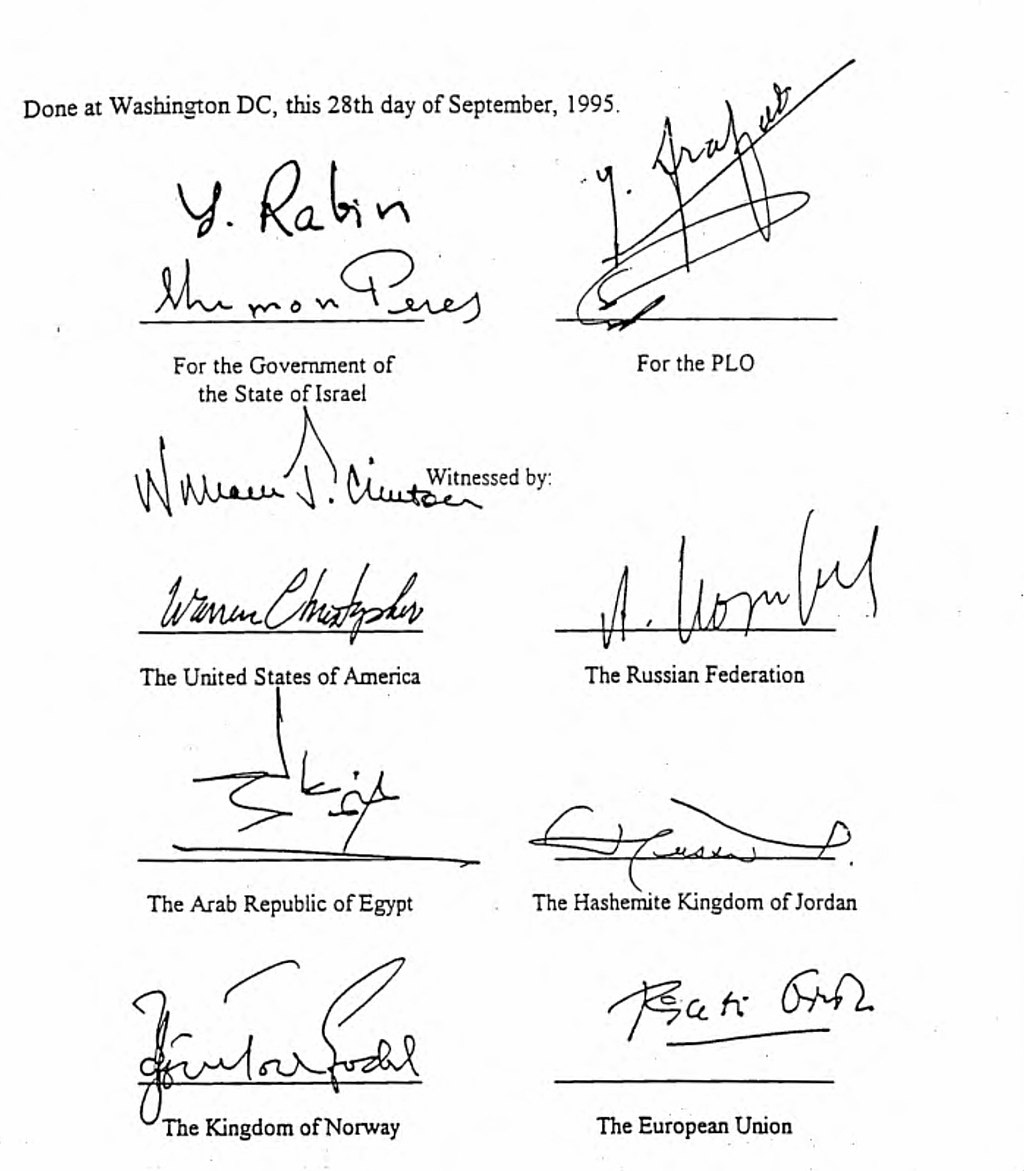 Done at Washington DC, this 28th day of September, 1995.
Y. Rabin
Y. Arafat
Shimon Peres
For the Government of
the State of Israel
For the PLO
Witnessed by:
William J. Clinton
Warren Christopher
The United States of America
The Russian Federation
The Arab Republic of Egypt
The Hashemite Kingdom of Jordan
The Kingdom of Norway
The European Union